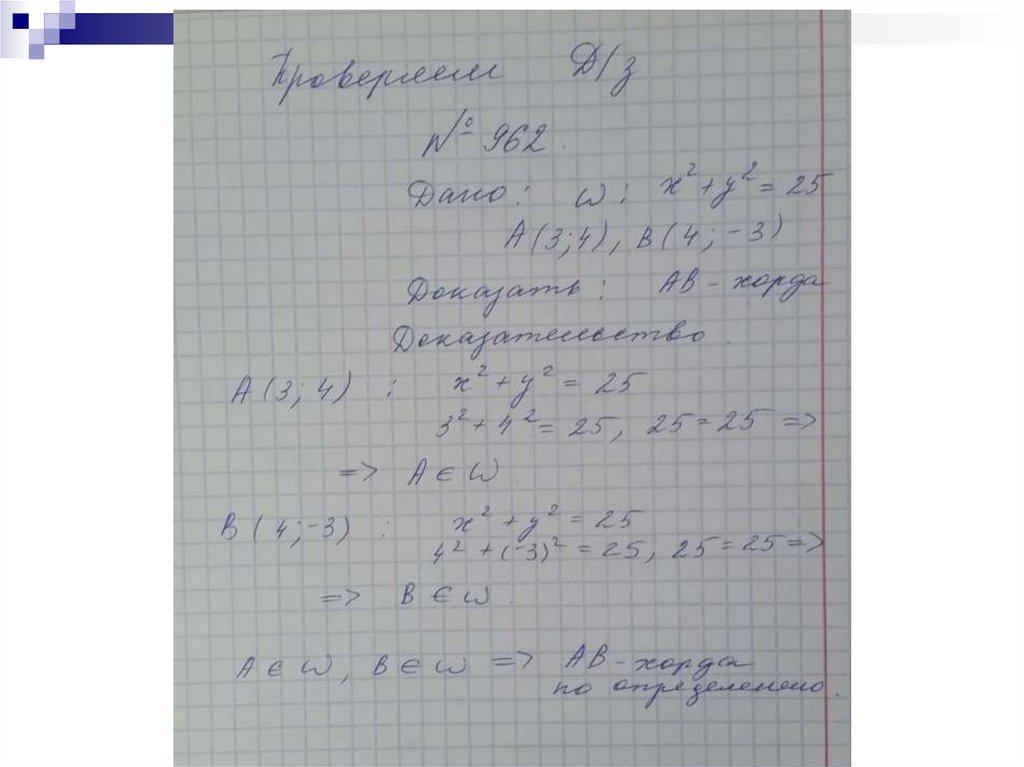 Проверяем Д/з
№ 962.
Дано: ω: x² + y² = 25
A(3;4), B(4;-3)
Доказать: AB - хорда
Доказательство.
A(3;4) : x² + y² = 25
3² + 4² = 25, 25 = 25 =>
=> A ∈ ω.
B(4;-3) : x² + y² = 25
4² + (-3)² = 25, 25 = 25 =>
=> B ∈ ω.
A ∈ ω, B ∈ ω => AB - хорда
по определению.